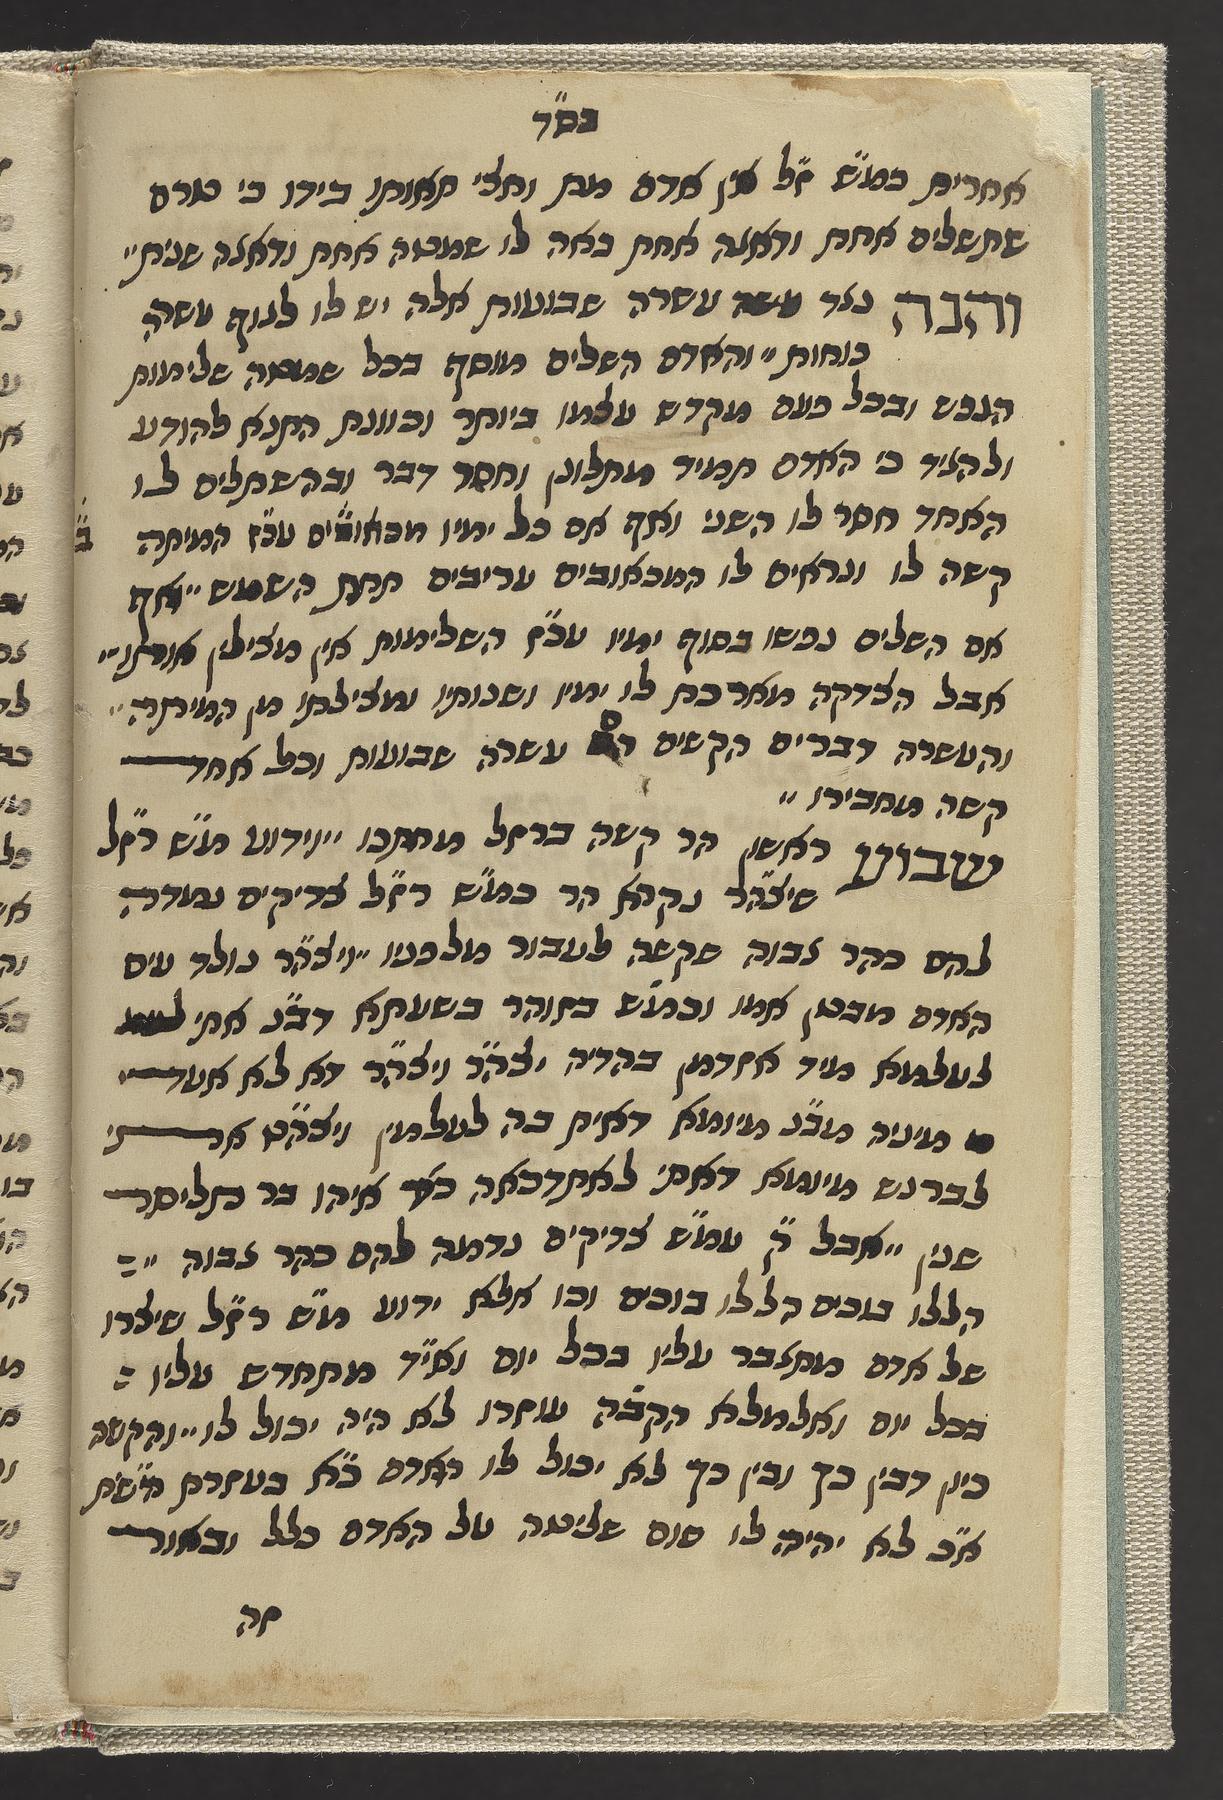 בס״ד
אחרית כמ״ש ז״ל אין אדם מת וחצי תאותו בידו כי טרם
שתשלים אחת ודאגה אחת באה לו שמטה אחת ודאגה שנית״
והנה נגד עשרה שבועות אלה יש לו לגוף עשרה
כוחות״ והאדם השלים מוסף בכל שמטה שלימות
הנפש ובכל פעם מקדש עצמו ביותר וכוונת התנא להודיע
ולהגיד כי האדם תמיד מתלונן וחסר דבר ובהשתלים לו
האחד חסר לו השני ואף אם כל ימיו מכאובים עכ״ז המיתה
קשה לו ונראים לו המכאובים עריבים תחת השמש״ ואף
אם השלים נפשו בסוף ימיו עכ״ז השלימות אין מצילין אותו״
אבל הצדקה מארכת לו ימיו ושנותיו ומצילתו מן המיתה״
והעשרה דברים הקשים הם עשרה שבועות וכל אחד
קשה מחבירו״
שבוע ראשון הר קשה ברזל מחתכו״ וידוע מ״ש רז״ל
שיצה״ר נקרא הר כמ״ש רז״ל צדיקים נמדה
להם כהר גבוה שקשה לעבור מלפניו״ ויצה״ר נולד עים
האדם מבטן אמו וכמ״ש בזוהר בשעתא דב״נ אתי
לעלמא מיד אזדמן בהדיה יצה״ר ויצה״ר דא לא אעדי
מיניה מב״נ מיומא דאית בה לעלמין ויצה״ט אתי
לבר נש מיומא דאתי לאתדכאה כד איהו בר תליסר
שנין״ אבל ק׳ עמ״ש צדיקים נדמה להם כהר גבוה״
הללו בוכים הללו בוכים וכו אלא ידוע מ״ש רז״ל שיצרו
של אדם מתגבר עליו בכל יום וא״ד מתחדש עליו
בכל יום ואלמלא הקב״ה עוזרו לא היה יכול לו״ והקשה
כיון דבין כך ובין כך לא יכול לו האדם כ״א בעזרת הש״ת
א״כ לא יהיה לו שום שליטה על האדם כלל ובאור
זה